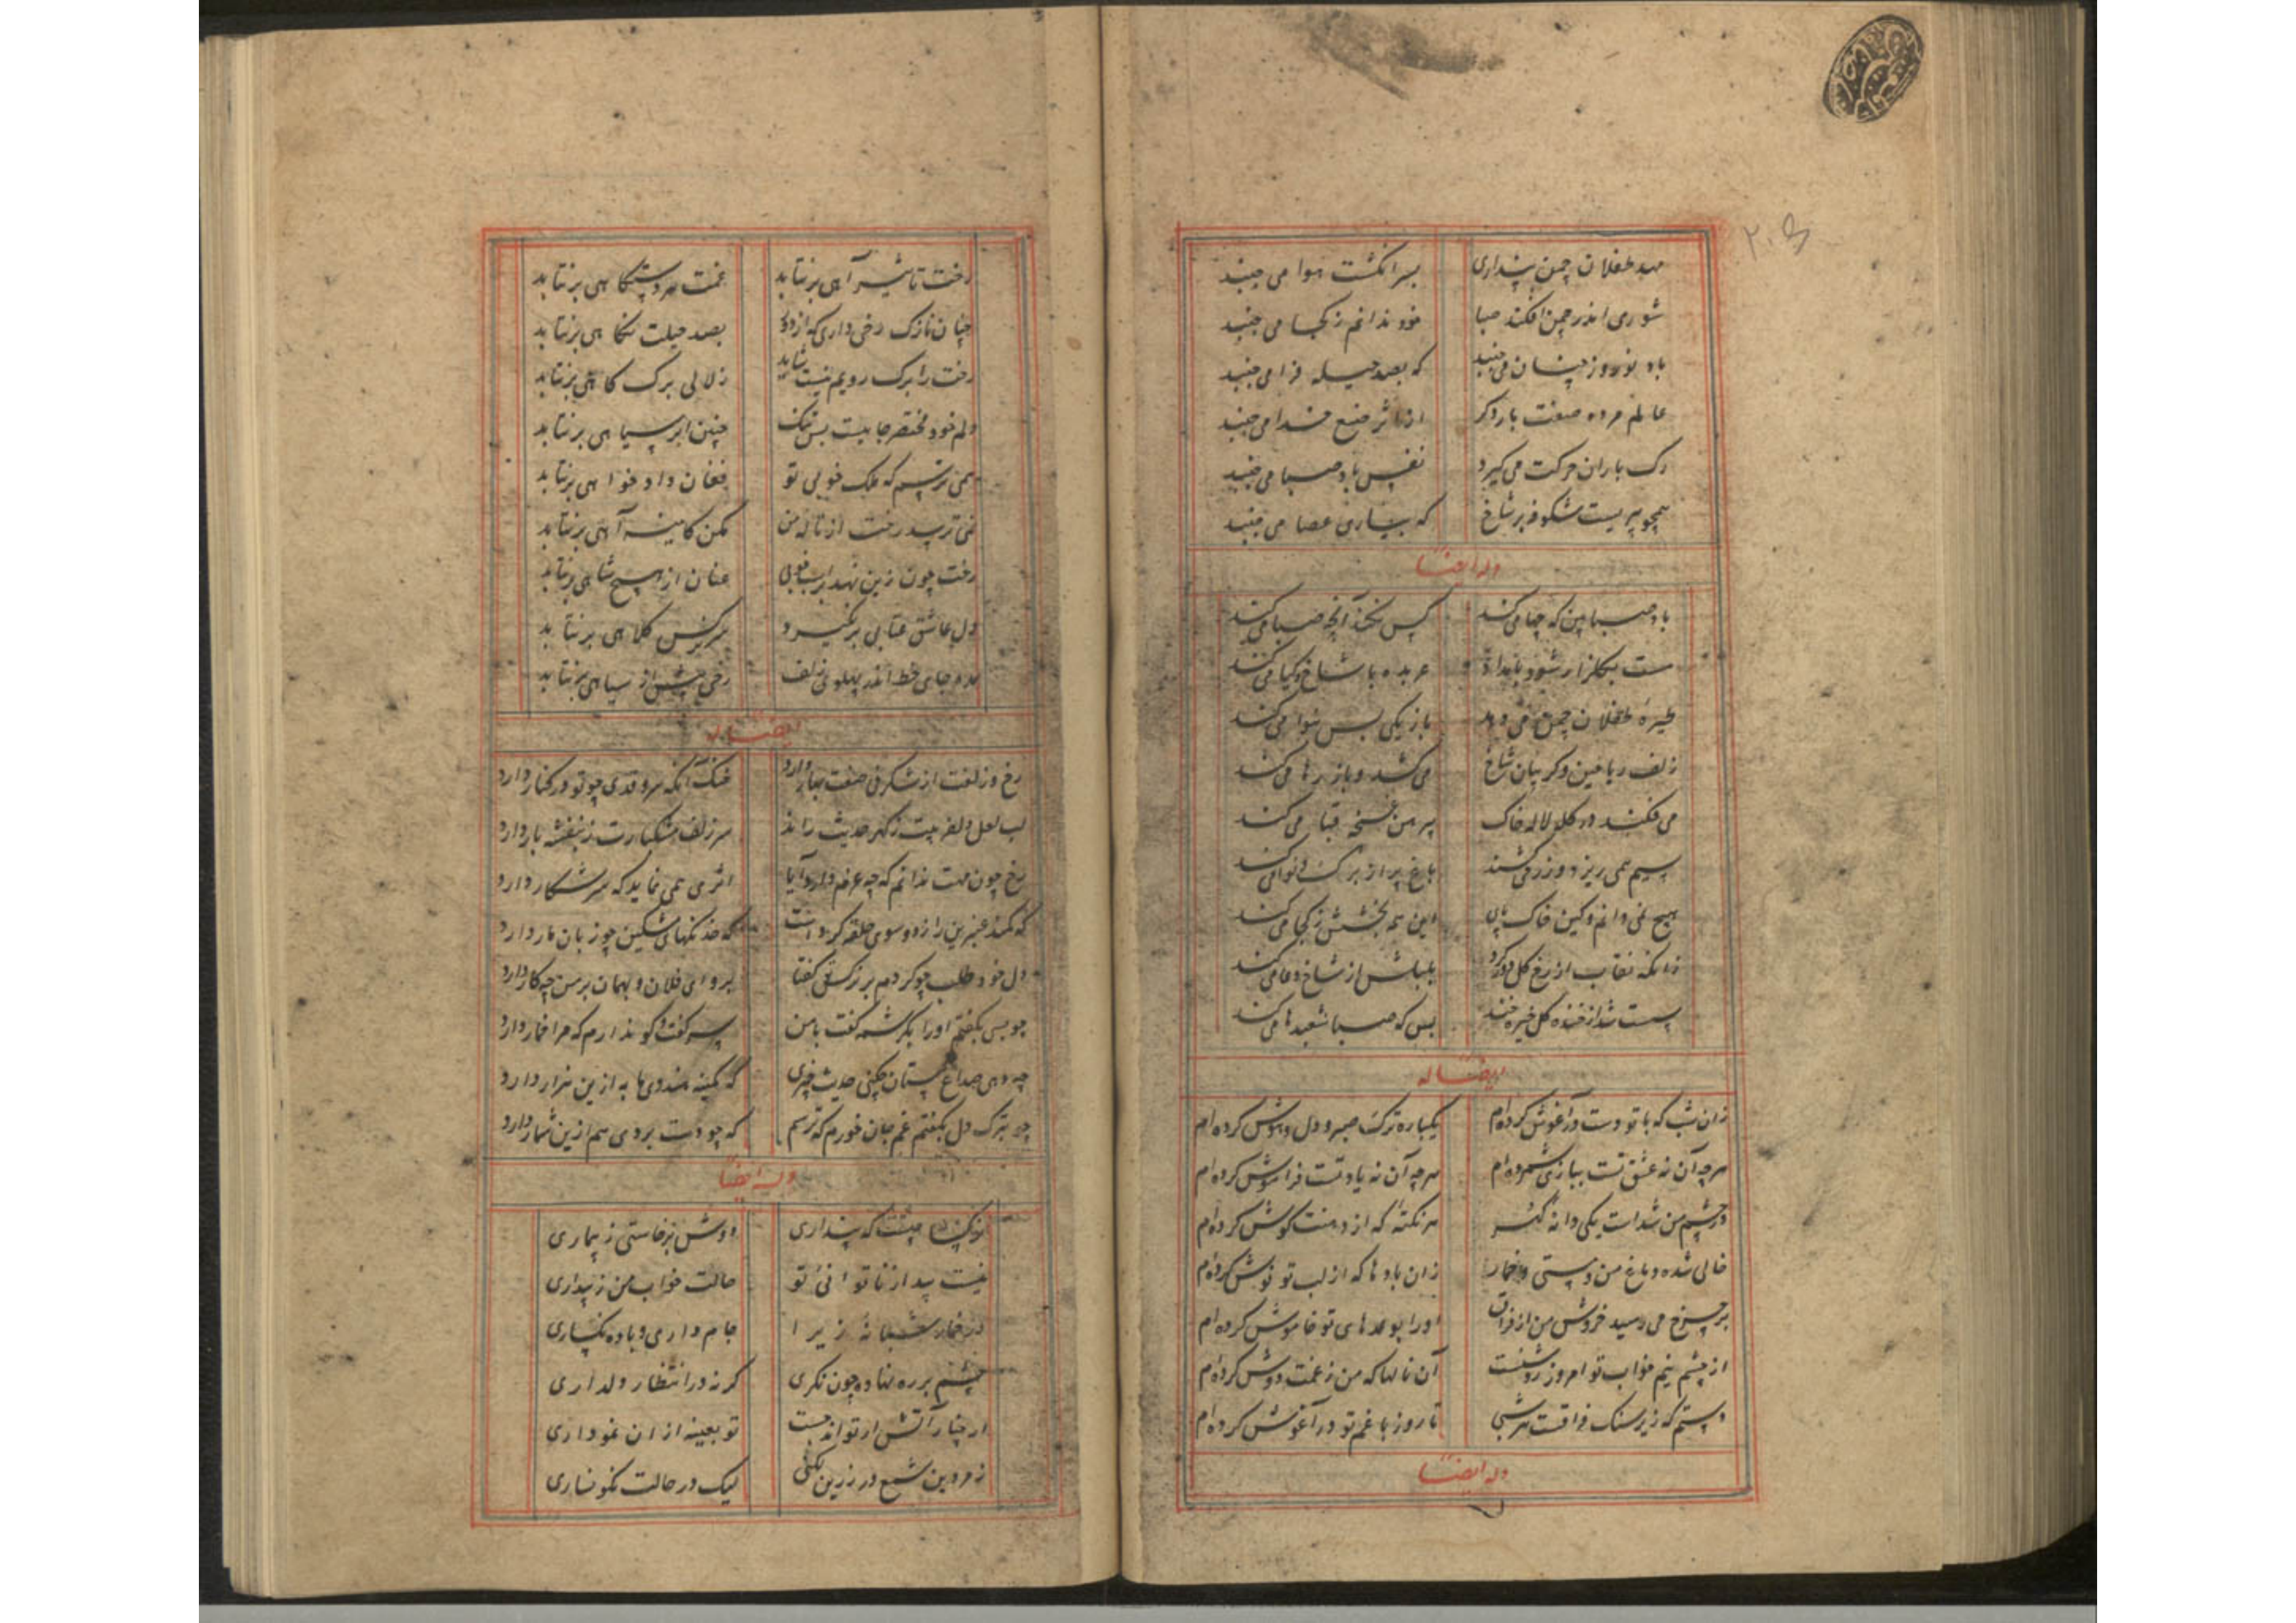 مهد طفلان چمن پنداری بسر انگشت هوا می جنبد
شوری اندر چمن افکند صبا خود ندانم ز کجا می جنبد
باد نوروز چنان می جنبد که بصد حیله فرا می جنبد
عالم مرده صفت بار دگر از اثر صنع خدا می جنبد
رک باران حرکت می گیرد نفس باد صبا می جنبد
همچو پیریست شکوفه بر شاخ که بیاری عصا می جنبد
وله ایضا
باد صبا بین که چها می کند کس نکند آنچه صبا می کند
مست بگلزار شود بامداد عربده با شاخ و کیا می کند
طیره طفلان چمن می دهد باز یکی بس بنوا می کند
زلف ریاحین و کریبان شاخ می کشد و باز رها می کند
می فکند در کله لاله خاک پیرهن غنچه قبا می کند
سیم همی ریزد و زر می کشد باغ پر از برک و نوا می کند
هیچ نمی دانم و کین خاک پای این همه بخشش ز کجا می کند
زانکه نقاب از رخ کل دور کرد بلبلش از شاخ دعا می کند
پست شد از خنده کل خیره خند بس که صبا شعبدها می کند
ایضا له
زان شب که با تو دست در آغوش کرده ام یکباره ترک صبر و دل و هوش کرده ام
هر چه آن نه عشق تست ببازی شمرده ام هر چه آن نه یاد تست فراموش کرده ام
در چشم من شد است یکی دانه کهر هر نکته که از دهنت کوش کرده ام
خالی نشده دماغ من و مستی و خمار زان بادها که از لب تو نوش کرده ام
بر چرخ می رسید خروش من از فراق او را بوعدهای تو خاموش کرده ام
از چشم نیم خواب تو امروز روشنست آن نالها که من ز غمت دوش کرده ام
دستم که زیر سنک فراقت هر شبی تا روز با غم تو در آغوش کرده ام
وله ایضا
رخت تاثیر آهی برنتابد غمت هر دستکاهی برنتابد
چنان نازک رخی داری که از دور بصد حیلت نکاهی برنتابد
رخت را برک رویم نیست شاید زلالی برک کاهی برنتابد
دلم خود مختصر جاییست بس تنک چنین ابر سیاهی برنتابد
همی ترسم که ملک خوبی تو فغان دادخواهی برنتابد
نمی ترسد رخت از ناله من مکن کایینه آهی برنتابد
رخت چون زین نهد بر اسب خوبی عنان از هیچ شاهی برنتابد
دل عاشق عتابی برنگیرد سر کرکس کلاهی برنتابد
مده جای خط اندر پهلوی زلف رخی بیش از سیاهی برنتابد
ایضا له
رخ و زلفت از شکرفی صفت بهار دارد خنک آنکه سرو قدی چو تو در کنار دارد
لب لعل دلفریبت ز کهر حدیث راند سر زلف مشکبارت ز بنفشه بار دارد
رخ چون مهت ندانم که چه عزم دارد آیا اثری همی نماید که سر شکار دارد
که کمند عنبرین را ز دو سوی حلقه کردست که خدنکهای مشکین چو زبان مار دارد
دل خود طلب چو کردم بر نرکسش گفتا برو ای فلان و بهمان بر من چه کار دارد
چو بسی بگفتم او را بکرشمه گفت با من سر گفت و کو ندارم که مرا خمار دارد
چه دهی صداع مستان چکنی حدیث چیزی که کمینه هندوی ما به ازین هزار دارد
چو بترک دل بگفتم غم جان خورم که ترسم که چو دست بردی هم ازین شمار دارد
وله ایضا
نرکس مستت که پنداری دوش برخاستی ز بیماری
نیست بیدار ناتوانی تو حالت خواب من ز بیداری
در خمار شبانه زیرا جام داری و باده نکساری
چشم بر ره نهاده چون نکری کر نه در انتظار دلداری
ار چنار آتش ار تواند جست تو بعینه از ان نموداری
زمردین شمع در زرین لکنی لیک در حالت نکونساری